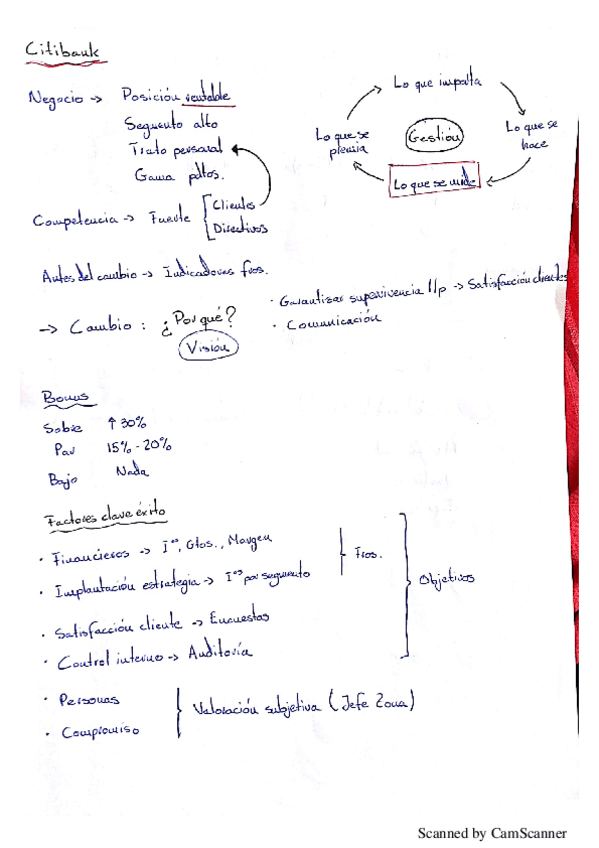 Citibank
Negocio → Posición rentable
Segmento alto
Trato personal
Gama pdtos.
Lo que importa
Lo que se hace
Lo que se mide
Lo que se premia
Gestión
Competencia → Fuerte [Clientes
Directivos
Antes del cambio → Indicadores fros.
→ Cambio : ¿Por qué?
Visión
· Garantizar supervivencia l/p → Satisfacción clientes
· Comunicación
Bonus
Sobre ↑ 30%
Par 15% - 20%
Bajo Nada
Factores clave éxito
· Financieros → Iºs, Gtos., Margen
· Implantación estrategia → Iºs por segmento
Fros.
· Satisfacción cliente → Encuestas
· Control interno → Auditoría
Objetivos
· Personas
· Compromiso
Valoración subjetiva (Jefe Zona)
Scanned by CamScanner